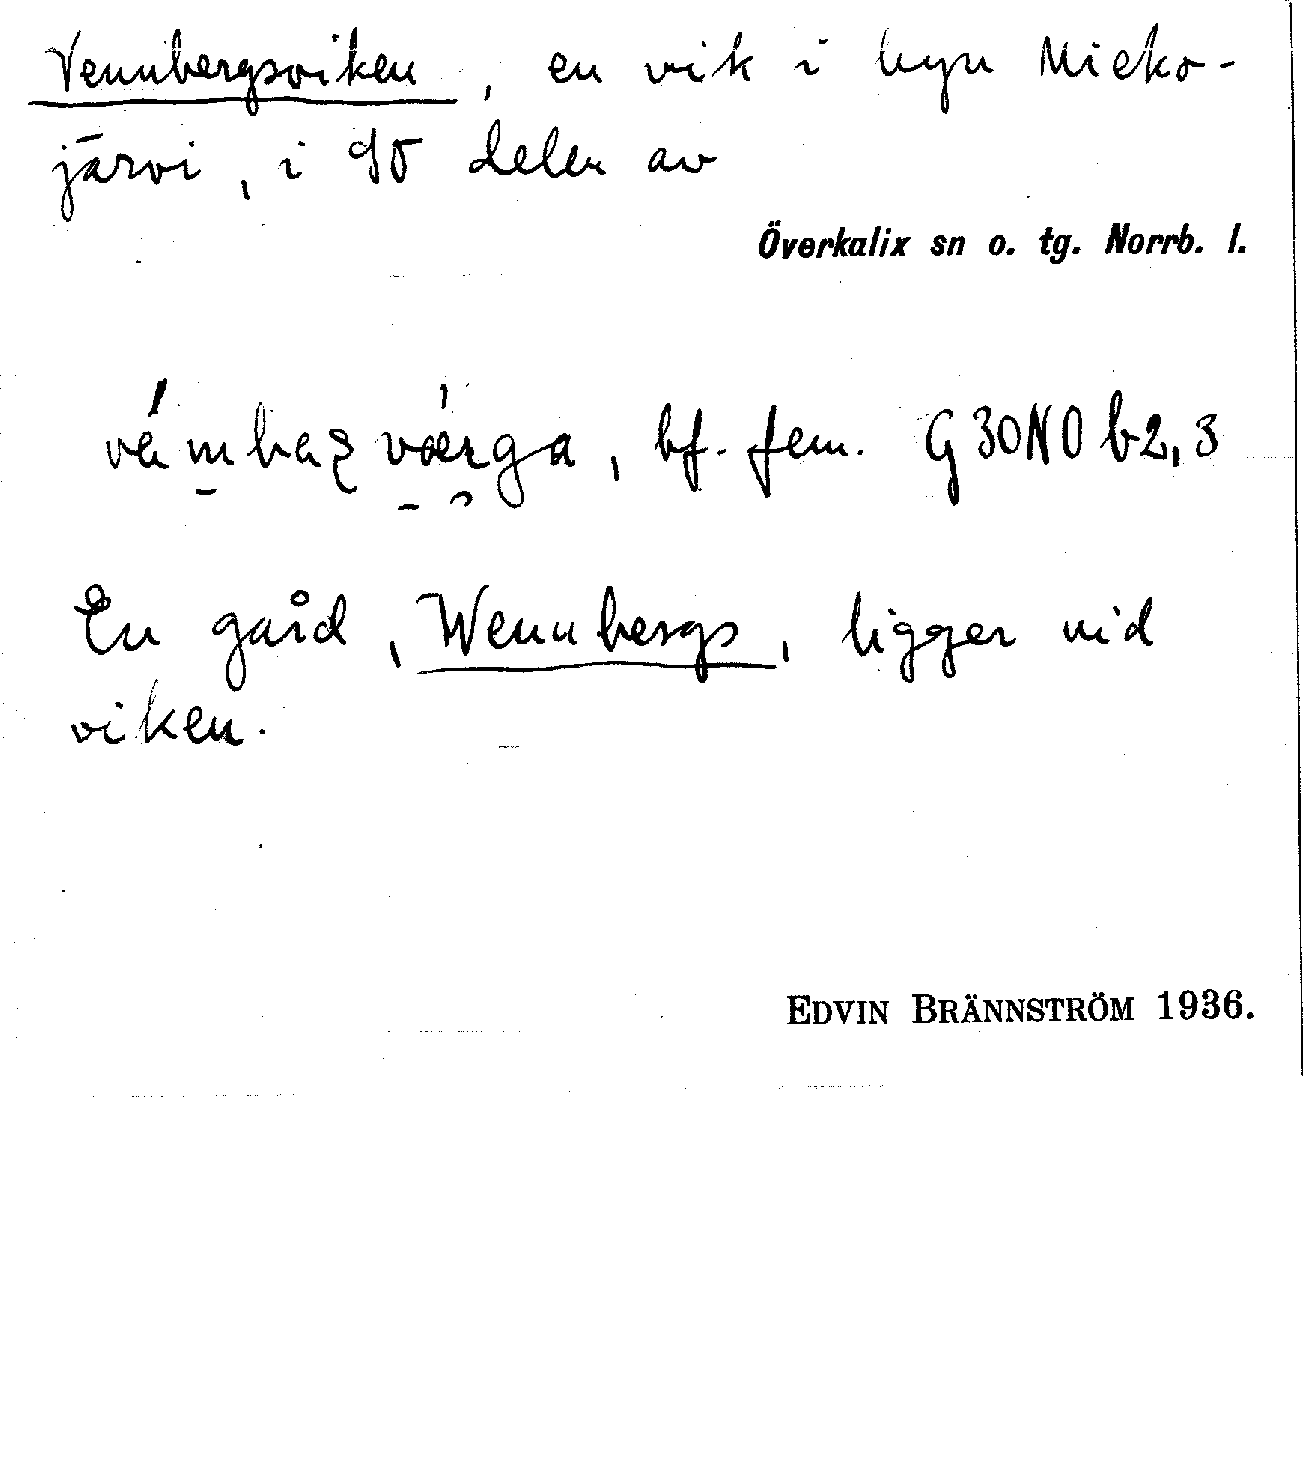 Vennbergsviken, en vik i byn Mieko-
järvi, i SO delen av
Överkalix sn o. tg. Norrb. l.
bf. fem. G 30 NO b2,3
En gård, Wennbergs, ligger vid
viken.
EDVIN BRÄNNSTRÖM 1936.